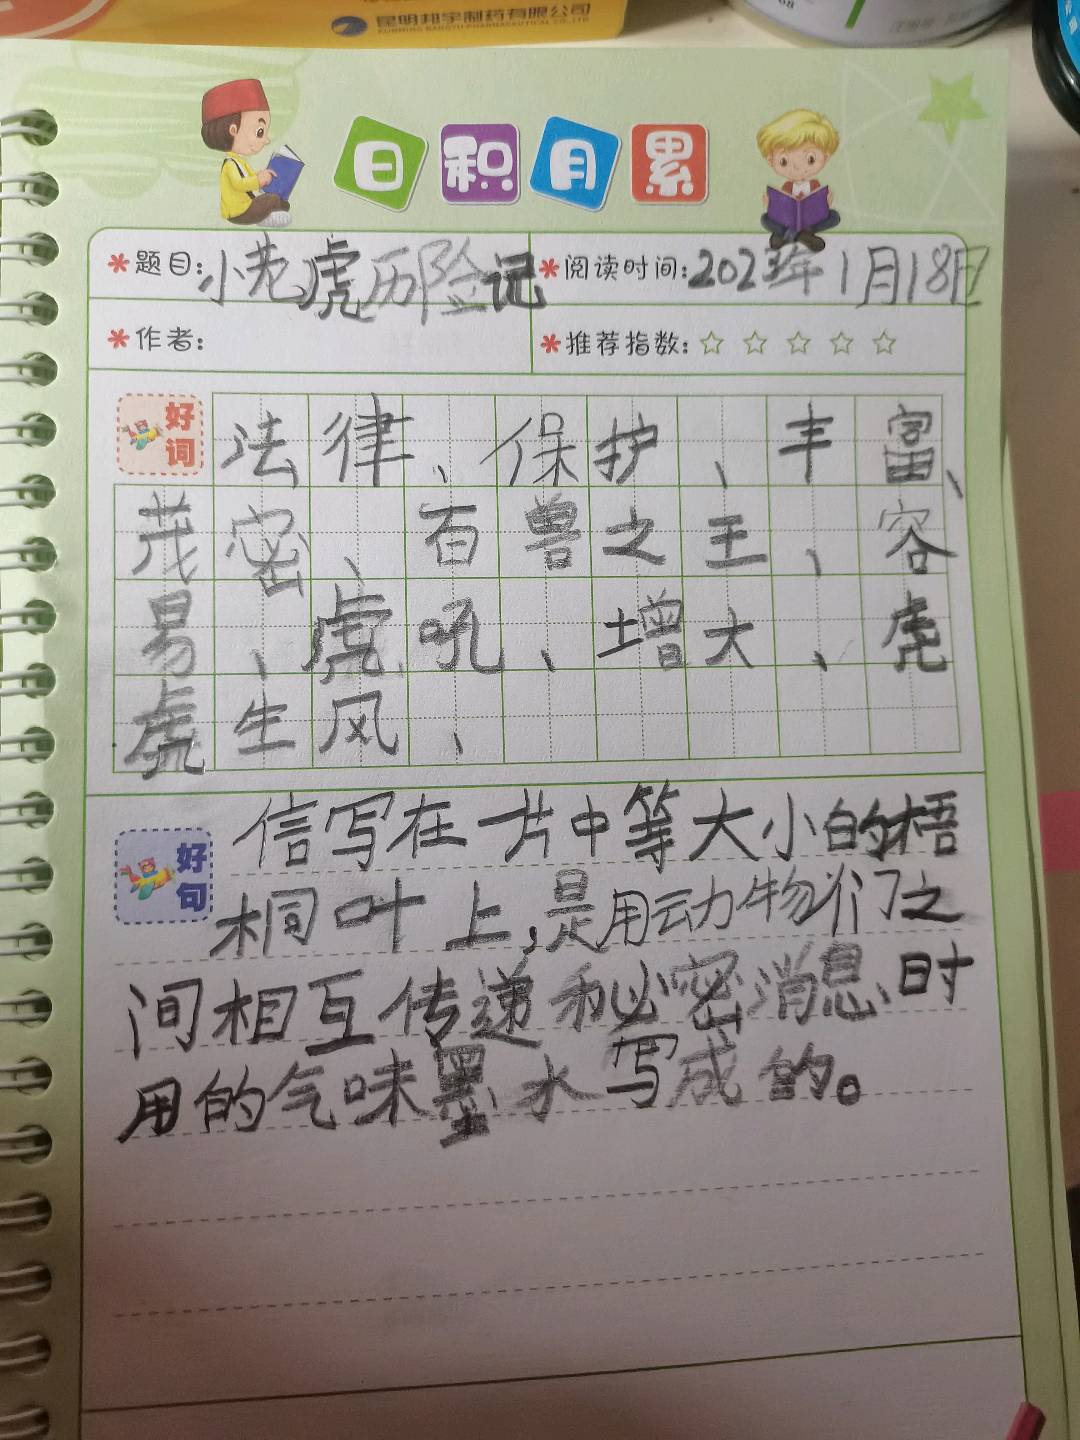 昆明邦宇制药有限公司
KUNMING BANGYU PHARMACEUTICAL CO.,LTD
日积月累
*题目:小老虎历险记 *阅读时间:2023年1月18日
*作者: *推荐指数:☆ ☆ ☆ ☆ ☆
好词 法律、保护、丰富、
茂密、百兽之王、容
易、虎吼、增大、虎
虎生风、
好句 信写在一片中等大小的梧
桐叶上,是用动物们之
间相互传递秘密消息时
用的气味墨水写成的。